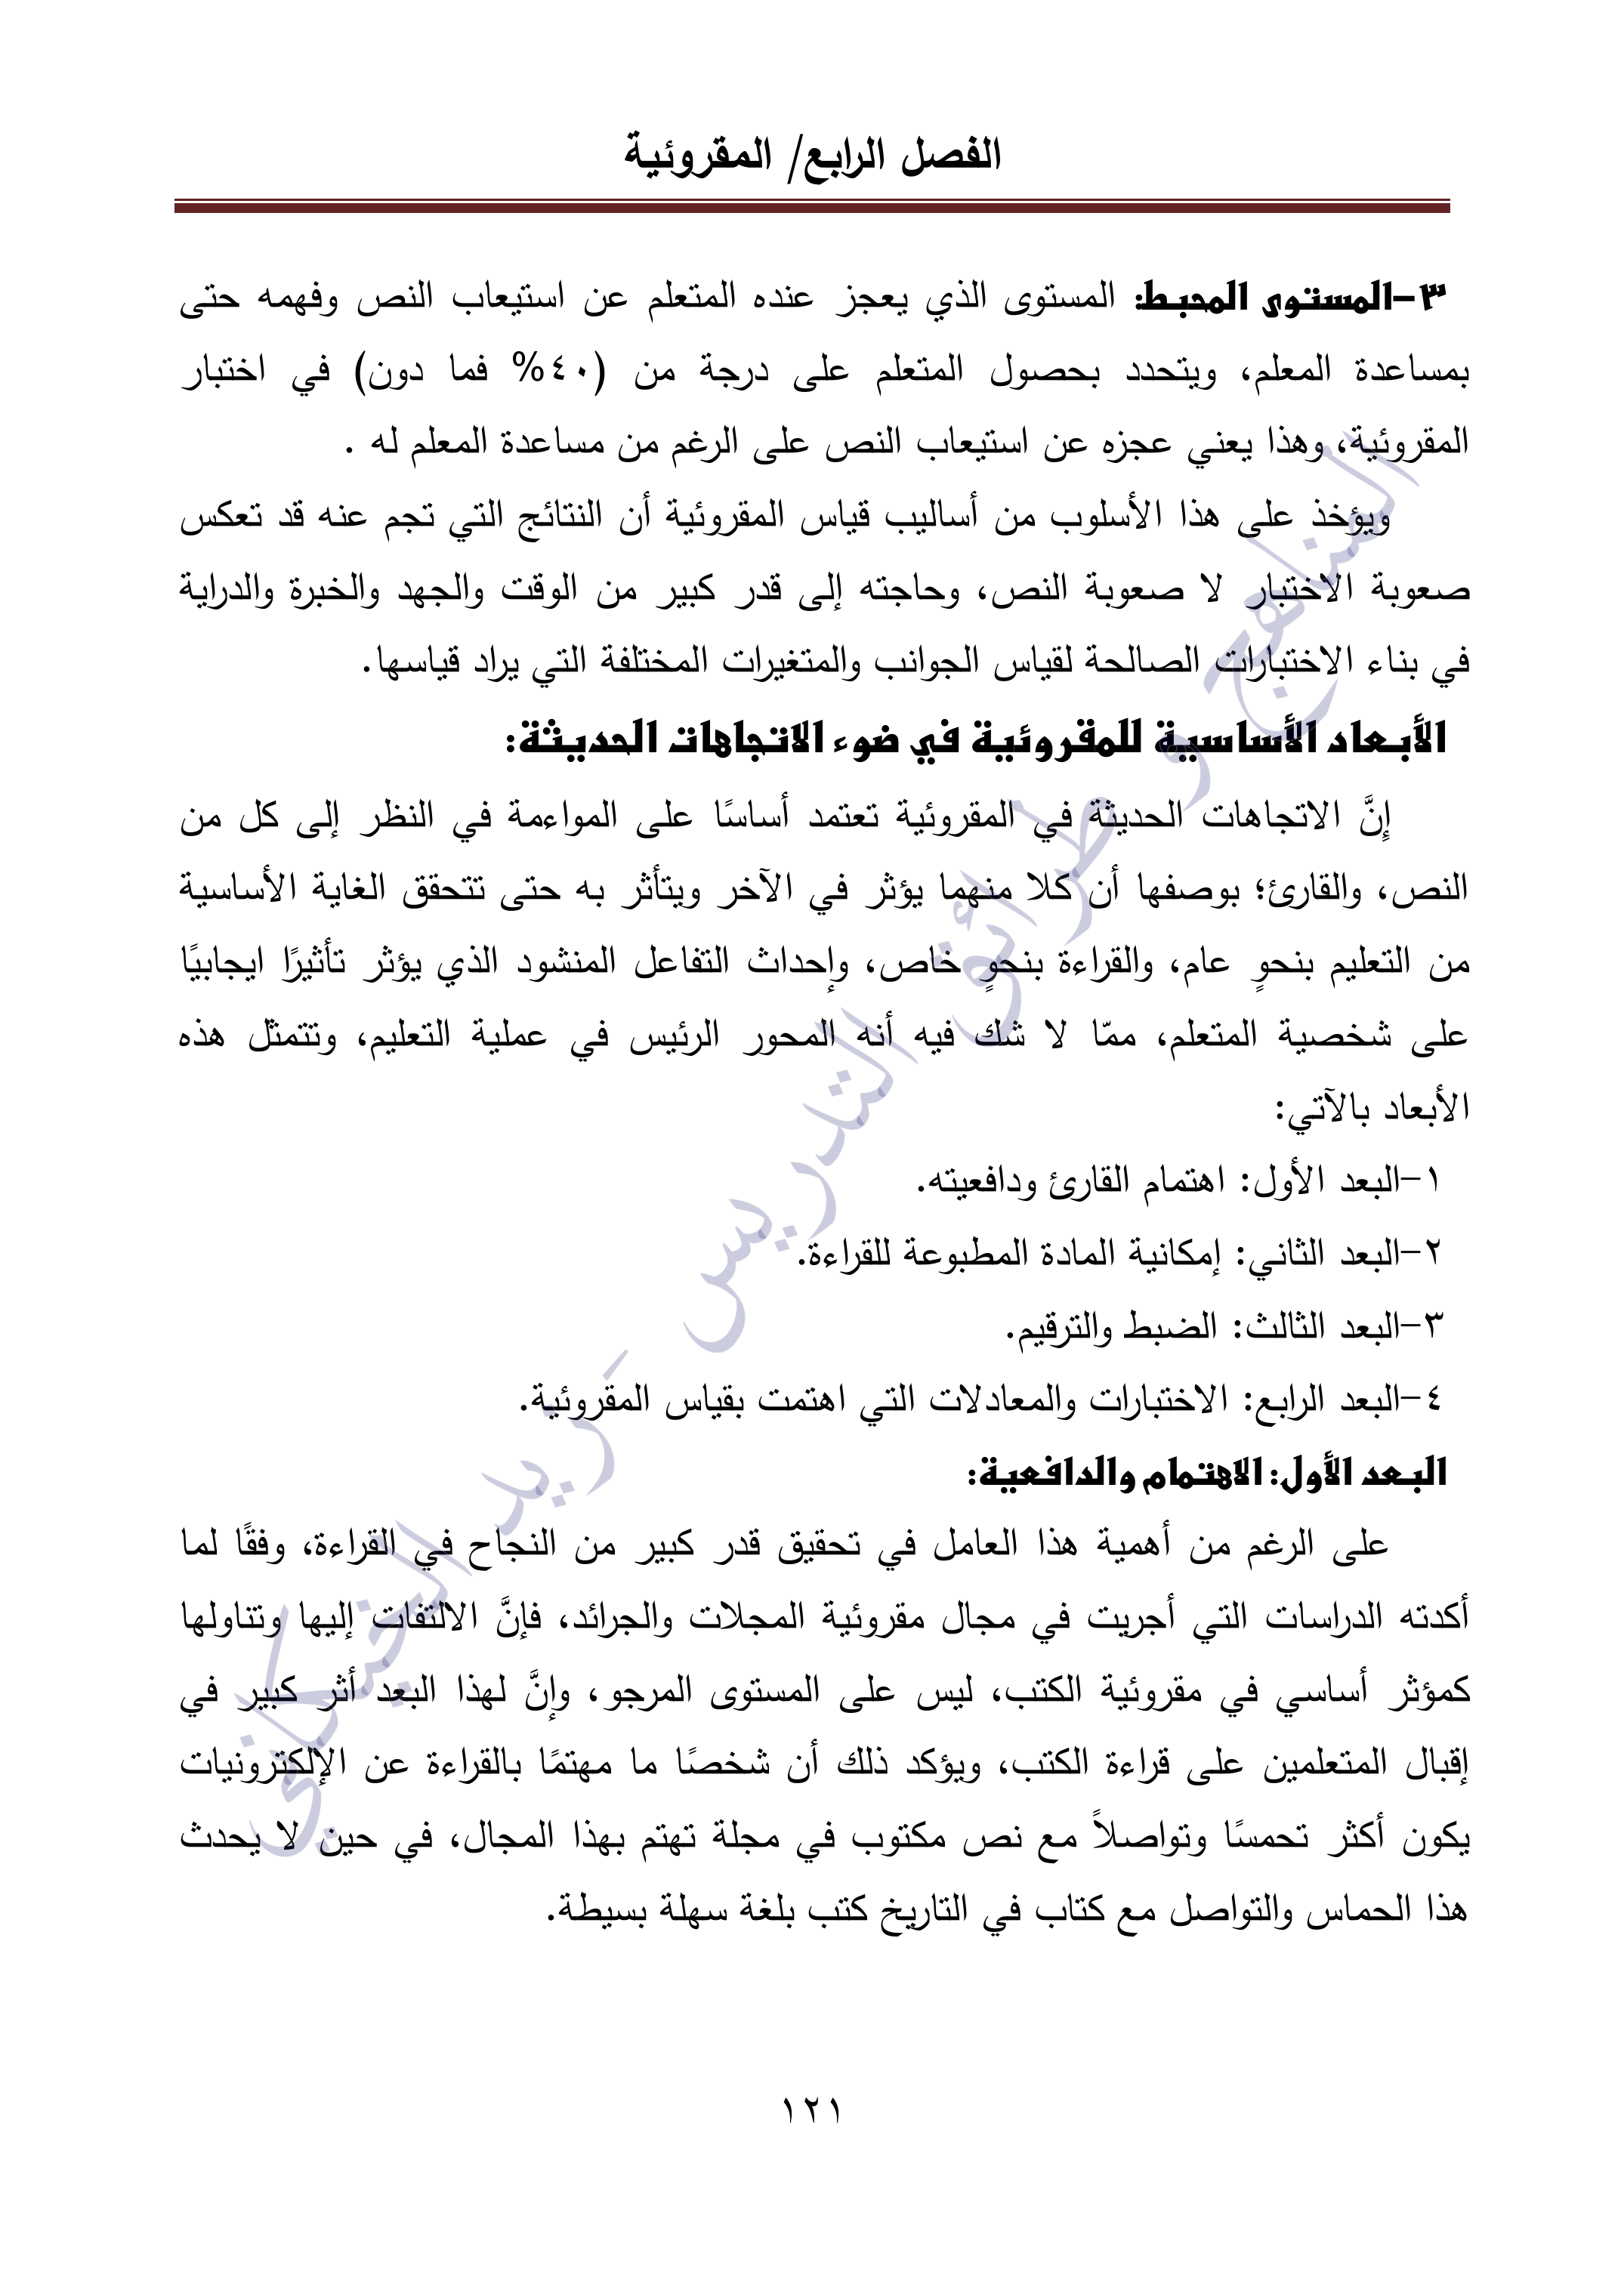 الفصل الرابع/ المقروئية
٣-المستوى المحبط: المستوى الذي يعجز عنده المتعلم عن استيعاب النص وفهمه حتى
بمساعدة المعلم، ويتحدد بحصول المتعلم على درجة من (٤٠% فما دون) في اختبار
المقروئية، وهذا يعني عجزه عن استيعاب النص على الرغم من مساعدة المعلم له .
ويؤخذ على هذا الأسلوب من أساليب قياس المقروئية أن النتائج التي تجم عنه قد تعكس
صعوبة الاختبار لا صعوبة النص، وحاجته إلى قدر كبير من الوقت والجهد والخبرة والدراية
في بناء الاختبارات الصالحة لقياس الجوانب والمتغيرات المختلفة التي يراد قياسها.
الأبعاد الأساسية للمقروئية في ضوء الاتجاهات الحديثة:
إنَّ الاتجاهات الحديثة في المقروئية تعتمد أساسًا على المواءمة في النظر إلى كل من
النص، والقارئ؛ بوصفها أن كلا منهما يؤثر في الآخر ويتأثر به حتى تتحقق الغاية الأساسية
من التعليم بنحوٍ عام، والقراءة بنحوٍ خاص، وإحداث التفاعل المنشود الذي يؤثر تأثيرًا ايجابيًا
على شخصية المتعلم، ممّا لا شك فيه أنه المحور الرئيس في عملية التعليم، وتتمثل هذه
الأبعاد بالآتي:
١-البعد الأول: اهتمام القارئ ودافعيته.
٢-البعد الثاني: إمكانية المادة المطبوعة للقراءة.
٣-البعد الثالث: الضبط والترقيم.
٤-البعد الرابع: الاختبارات والمعادلات التي اهتمت بقياس المقروئية.
البعد الأول: الاهتمام والدافعية:
على الرغم من أهمية هذا العامل في تحقيق قدر كبير من النجاح في القراءة، وفقًا لما
أكدته الدراسات التي أجريت في مجال مقروئية المجلات والجرائد، فإنَّ الالتفات إليها وتناولها
كمؤثر أساسي في مقروئية الكتب، ليس على المستوى المرجو، وإنَّ لهذا البعد أثر كبير في
إقبال المتعلمين على قراءة الكتب، ويؤكد ذلك أن شخصًا ما مهتمًا بالقراءة عن الإلكترونيات
يكون أكثر تحمسًا وتواصلاً مع نص مكتوب في مجلة تهتم بهذا المجال، في حين لا يحدث
هذا الحماس والتواصل مع كتاب في التاريخ كتب بلغة سهلة بسيطة.
١٢١
المناهج و طرائق التدريس - زيد الخيكاني